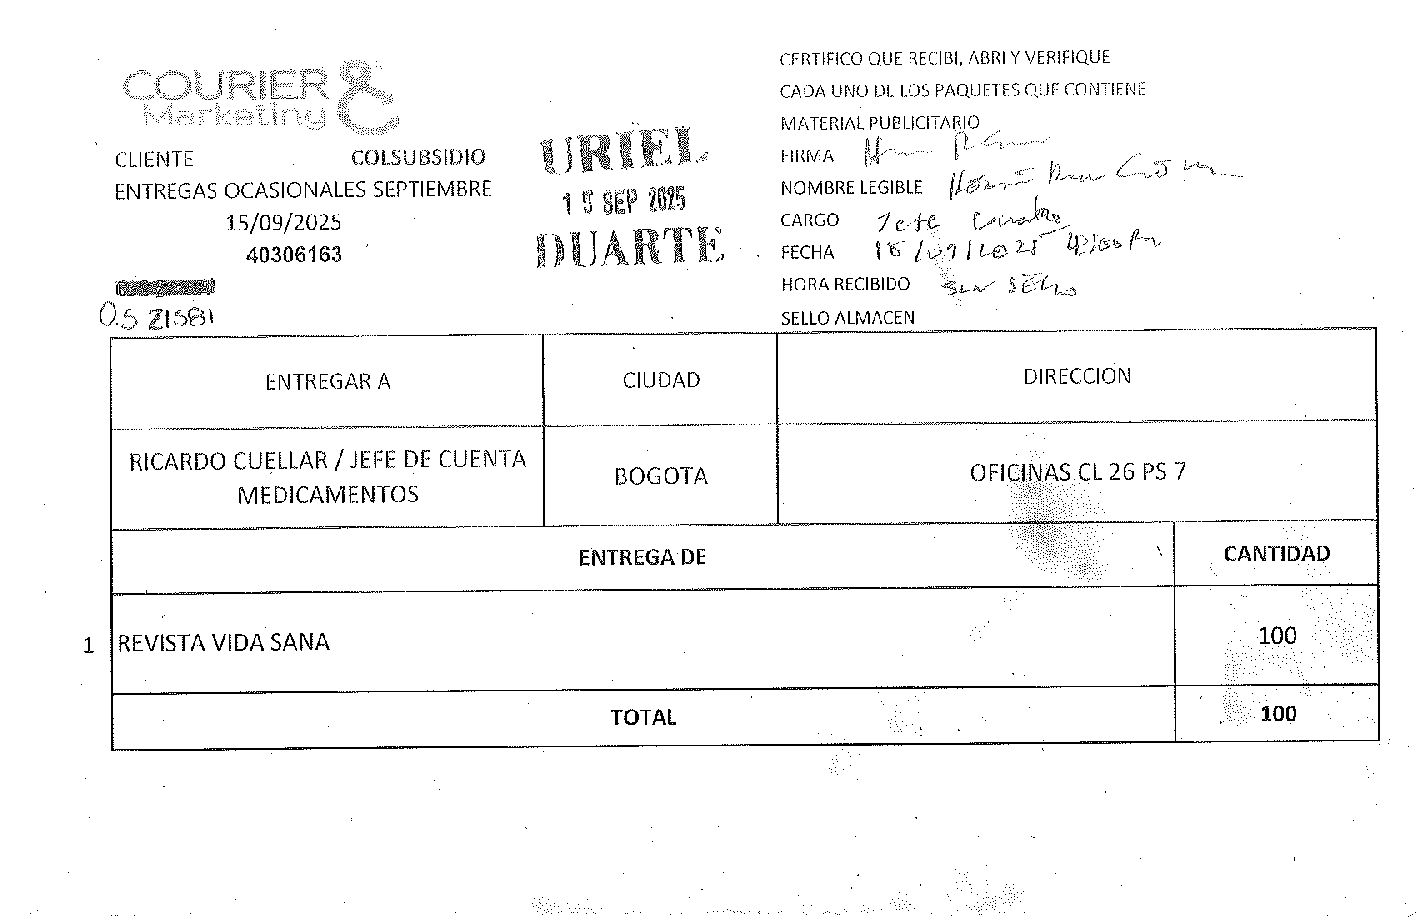 COURIER
Marketing
CLIENTE COLSUBSIDIO
ENTREGAS OCASIONALES SEPTIEMBRE
15/09/2025
40306163
O.S 21581
URIEL
15 SEP 2025
DUARTE
CERTIFICO QUE RECIBI, ABRI Y VERIFIQUE
CADA UNO DE LOS PAQUETES QUE CONTIENE
MATERIAL PUBLICITARIO
FIRMA
NOMBRE LEGIBLE
CARGO Jefe
FECHA 15/09/2025 4:00 Pm
HORA RECIBIDO Sin Sello
SELLO ALMACEN
ENTREGAR A CIUDAD DIRECCION
RICARDO CUELLAR / JEFE DE CUENTA
MEDICAMENTOS
BOGOTA
OFICINAS CL 26 PS 7
ENTREGA DE CANTIDAD
1 REVISTA VIDA SANA 100
TOTAL 100